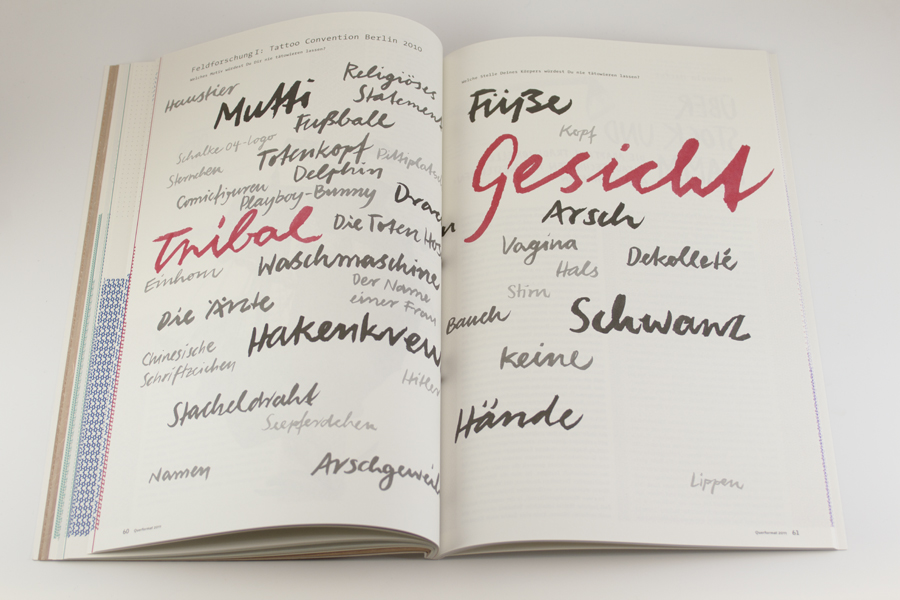 Feldforschung I: Tattoo Convention Berlin 2010
Welches Motiv würdest Du Dir nie tätowieren lassen?
Haustier
Mutti
Religiöses
Statement
Fußball
Schalke 04-Logo
Totenkopf
Sternchen
Delphin
Comicfiguren
Playboy-Bunny
Tribal
Die Toten Hos
Einhorn
Waschmaschine
Der Name
einer Frau
Die Ärzte
Hakenkreu
Chinesische
Schriftzeichen
Hitler
Stacheldraht
Seepferdchen
Namen
Arschgeweih
60
Welche Stelle Deines Körpers würdest Du nie tätowieren lassen?
Füße
Kopf
Gesicht
Arsch
Vagina
Dekolleté
Hals
Stirn
Bauch
Schwanz
Keine
Hände
Lippen
61